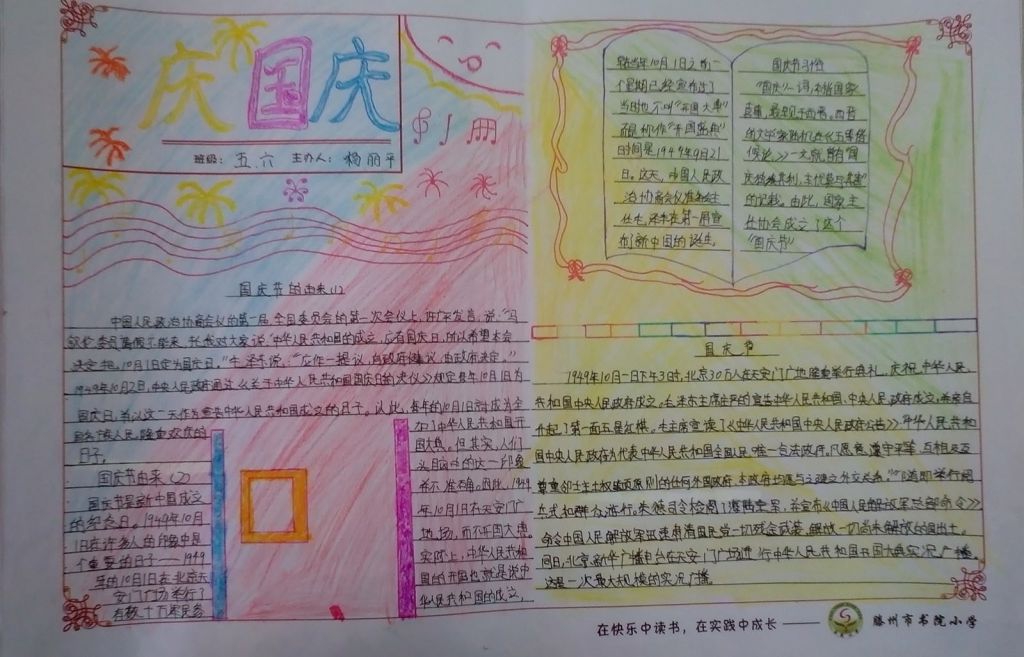 庆国庆
班级：五.六 主办人：杨丽平
国庆节的由来(1)
中国人民政治协商会议的第一届全国委员会的第一次会议上，许广平发言，说，“马
叙伦委员请假不能来，托我对大家说，中华人民共和国的成立，应有国庆日，所以希望本会
决定把10月1日定为国庆日。”毛泽东说，“应作一提议，向政府建议，由政府决定。”
1949年10月2日，中央人民政府通过《关于中华人民共和国国庆日的决议》规定每年10月1日为
国庆日，并以这一天作为宣告中华人民共和国成立的日子。从此，每年的10月1日就成为全
国各族人民隆重欢庆的
日子。
国庆节由来(2)
国庆节是新中国成立
的纪念日。1949年10月
1日在许多人的印象中是
个重要的日子——1949
年的10月1日在北京天
安门广场举行了
有数十万军民参
加了中华人民共和国开
国大典。但其实，人们
头脑中的这一印象
并不准确。因此，1949
年10月1日在天安门广
场，而不开国大典
实际上，中华人民共和
国的开国也就是说中
华人民共和国的成立，
早在当年10月1日之前一
个星期已经宣布过了
当时也不叫“开国大典”
而是称作“开国盛典”
时间是1949年9月21
日。这天，中国人民政
治协商会议准备会主
任毛泽东在第一届宣
布了新中国的诞生。
国庆节引语
“国庆”一词，本指国家
喜事，最早见于西晋。西晋
的文学家陆机在《五等诸
侯论》一文就曾有“国
庆独飨其利，主忧莫与其害”
的记载。由此，国家主
任协会成立了这个
“国庆节”
国庆节
1949年10月一日下午3时，北京30万人在天安门广场隆重举行典礼，庆祝中华人民
共和国中央人民政府成立。毛泽东主席庄严的宣告中华人民共和国，中央人民政府成立，并亲自
升起了第一面五星红旗。毛主席宣读了《中华人民共和国中央人民政府公告》
国中央人民政府为代表中华人民共和国全国人民唯一合法政府，凡愿意遵守平等，互相及互
尊重领土主权等项原则的任何外国政府，本政府均愿与之建立外交关系。”随即举行阅
兵式和群众游行。朱德司令检阅了海陆空军，并宣布《中国人民解放军总部命令》
命令中国人民解放军迅速肃清国民党一切残余武装，解放一切尚未解放的国出土。
同日，北京新华广播电台在天安门广场进行中华人民共和国开国大典实况广播，
这是一次最大规模的实况广播。
在快乐中读书，在实践中成长——
滕州市书院小学